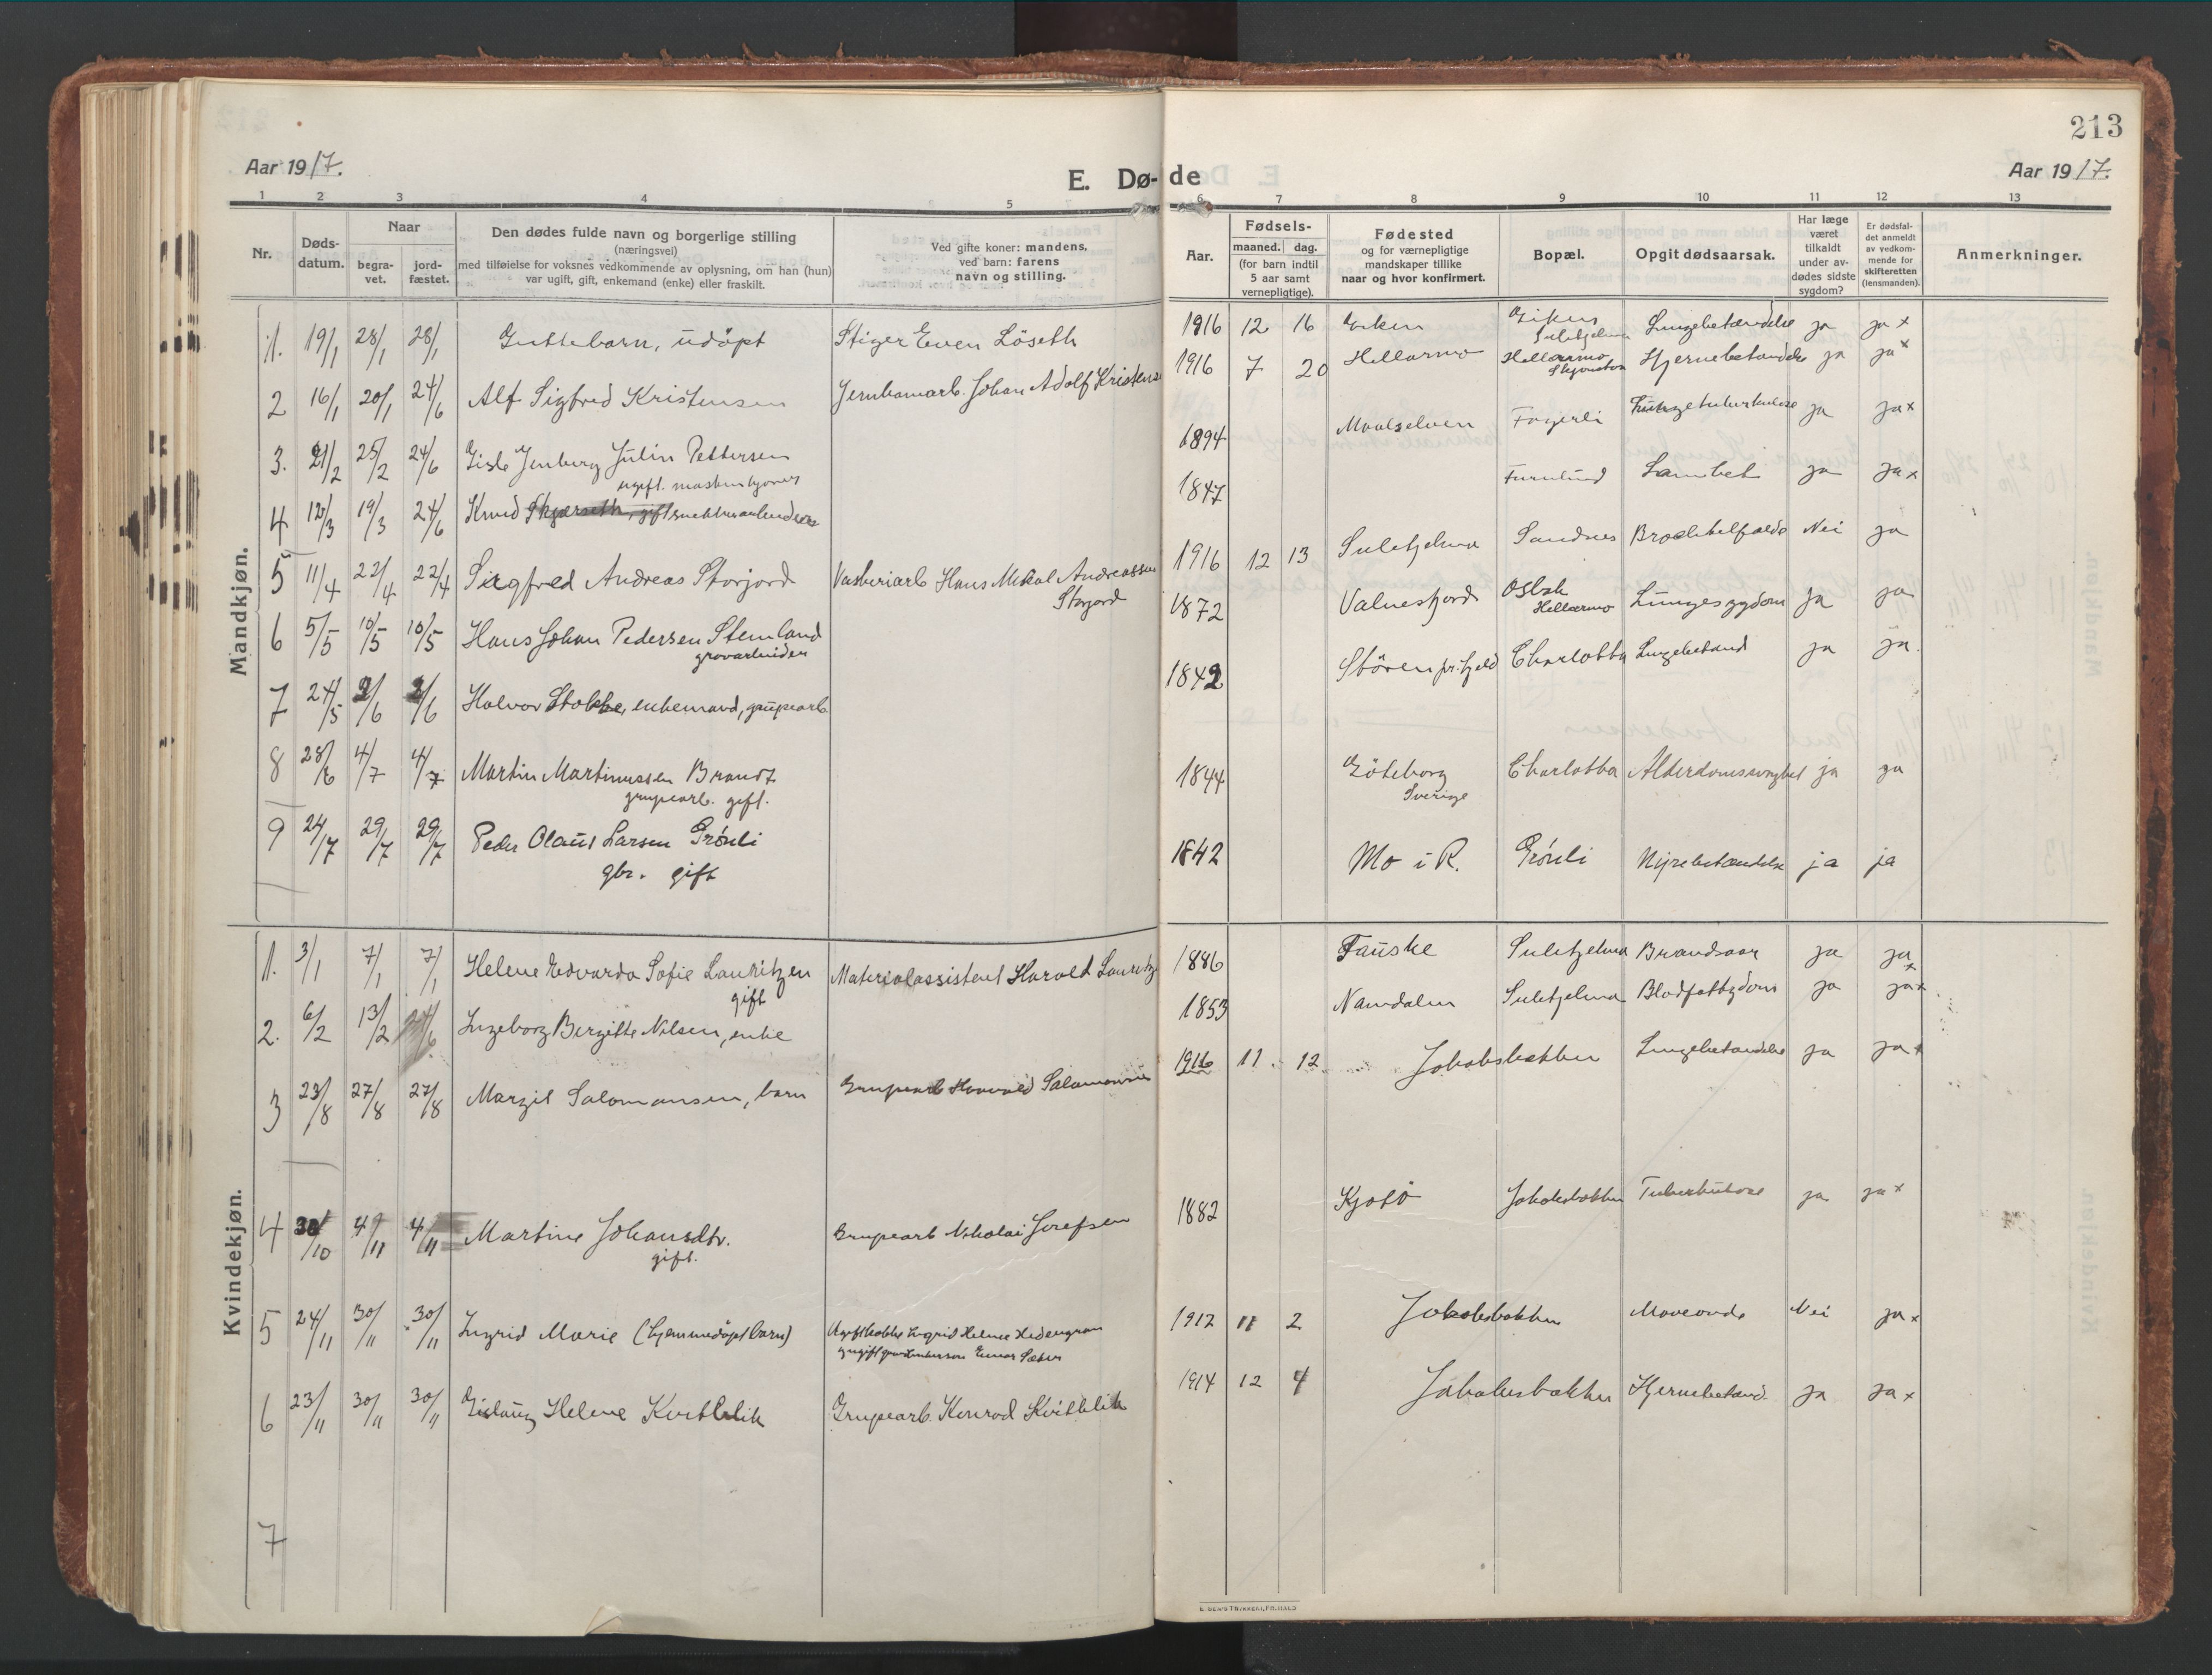 213
Aar 1917.
E. Dø-de
Aar 1917.
1 2 3 4 5 6 7 8 9 10 11 12 13
Nr.
Døds-
datum.
Naar
begra-
vet.
jord-
fæstet.
Den dødes fulde navn og borgerlige stilling
(næringsvei)
med tilføielse for voksnes vedkommende av oplysning, om han (hun)
var ugift, gift, enkemand (enke) eller fraskilt.
Ved gifte koner: mandens,
ved barn: farens
navn og stilling.
Aar.
Fødsels-
maaned. dag.
(for barn indtil
5 aar samt
vernepligtige).
Fødested
og for værnepligtige
mandskaper tillike
naar og hvor konfirmert.
Bopæl.
Opgit dødsaarsak.
Har læge
været
tilkaldt
under av-
dødes sidste
sygdom?
Er dødsfal-
det anmeldt
av vedkom-
mende for
skifteretten
(lensmanden).
Anmerkninger.
Mandkjøn.
1. 19/1 28/1 28/1 Guttebarn, udöpt Stiger Even Löseth 1916 12 16 Giken Giken Lungebetændelse ja ja x
Sulitjelma
2 16/1 20/1 24/6 Alf Sigfred Kristensen Jernbanearb. Johan Adolf Kristens 1916 7 20 Hellarmo Hellarmo Hjernebetændelse ja ja x
Skjønstaa
3. 21/2 25/2 24/6 Gisle Jenberg Julin Pettersen 1894 Maalselven Fagerli Lungetuberkulose ja ja x
ugift. maskinkjører
4 12/3 19/3 24/6 Knud Skjærseth, gift snekkerarbeider 1847 Furulund Lambet ja ja x
5 11/4 22/4 22/4 Sigfred Andreas Storjord Vaskeriarb Hans Mikal Andreassen 1916 12 13 Sulitjelma Sandnes Nei ja
Storjord
6 5/5 10/5 10/5 Hans Johan Pedersen Stemland 1872 Valnesfjord Osbak Lungesygdom ja ja
Hellarmo
7 24/5 2/6 2/6 Halvor Stokke, enkemand, grupearb 1842 Stören Charlotta Lungebetænd ja ja.
8 28/6 4/7 4/7 Martin Martinussen Brandt 1844 Göteborg Charlotta Alderdomssvaghet ja ja
grupearb. gift. Sverige
9 24/7 29/7 29/7 Peder Olaus Larsen Grönli 1842 Mo i R. Grönli Nyrebetændelse ja ja
gbr. gift
Kvindekjøn.
1. 3/1 7/1 7/1 Helene Edvarda Sofie Lauritzen Materialassistent Harald Lauritz 1886 Fauske Sulitjelma Brandsaar ja ja x
gift
2. 6/2 13/2 24/6 Ingeborg Birgitte Nilsen, enke 1853 Namdalen Sulitjelma Blodfattigdom ja ja x
3 23/8 27/8 27/8 Margit Salomonsen, barn Grupearb Haavald Salomonsen 1916 11 12 Jakobsbakken Lungebetændelse ja ja x
4 30/10 4/11 4/11 Martine Johansdtr. Grupearb Nikolai Josefsen 1882 Kjosö Jakobsbakken Tuberkulose ja ja x
gift.
5 24/11 30/11 30/11 Ingrid Marie (hjemmedöpt barn) Ugift kokke Ingrid Helene Hedengran 1917 11 2 Jakobsbakken Maveonde Nei ja x
6 23/11 30/11 30/11 Gislaug Helene Kvitblik Grupearb. Konrad Kvitblik 1914 12 4 Jakobsbakken Hjernebetænd. ja ja x
7